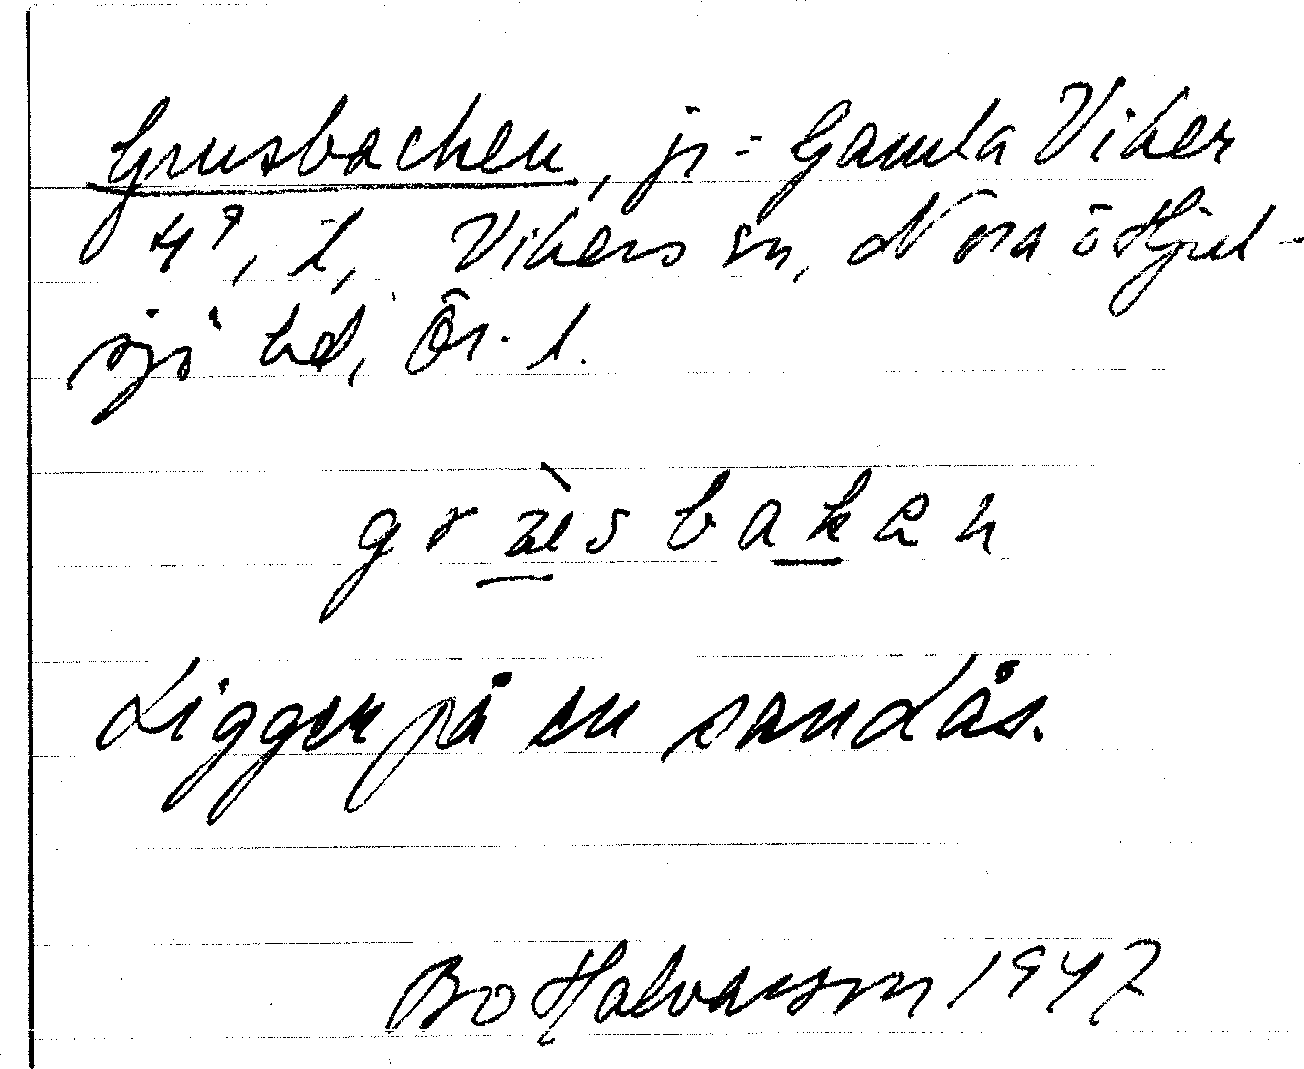 Grusbacken, jr = Gamla Viker
4⁹, l, Vikers sn, Nora ö Hjul-
sjö hd, Ör. l.
Ligger på en sandås.
Bo Halvarson 1947